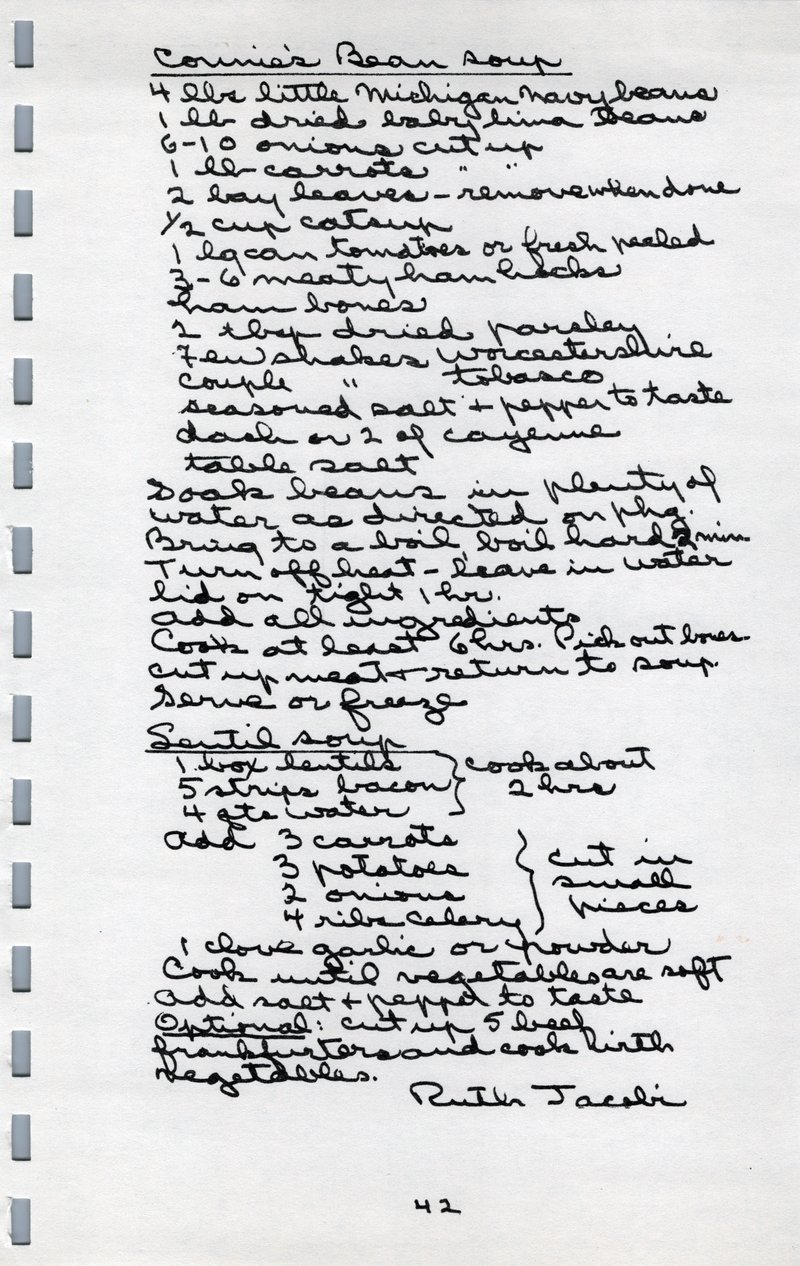 Connie's Bean Soup
4 lbs little Michigan Navy beans
1 lb dried baby lima Beans
6-10 onions cut up
1 lb carrots " "
2 bay leaves - remove when done
1/2 cup catsup
1 lg can tomatoes or fresh peeled
3-6 meaty ham hocks
ham bones
2 tbsp dried parsley
Few shakes Worcestershire
couple " tobasco
seasoned salt + pepper to taste
dash or 2 of cayenne
table salt
Soak beans in plenty of
water as directed on phg.
Bring to a boil, boil hard 2 min.
Turn off heat - leave in water
lid on tight 1 hr.
add all ingredients
Cook at least 6 hrs. Pick out bones.
cut up meat + return to soup.
Serve or freeze
Lentil soup
1 box lentils } cook about
5 strips bacon 2 hrs
4 qts water
add 3 carrots } cut in
3 potatoes small
2 onions pieces
4 ribs celery
1 clove garlic or powder
Cook until vegetables are soft
add salt + pepper to taste
Optional: cut up 5 beef
frankfurters and cook with
vegetables.
Ruth Jacobi
42